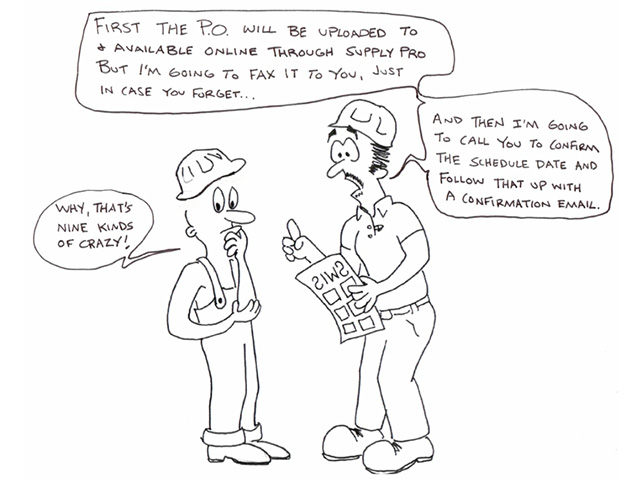 FIRST THE P.O. WILL BE UPLOADED TO
& AVAILABLE ONLINE THROUGH SUPPLY PRO
BUT I'M GOING TO FAX IT TO YOU, JUST
IN CASE YOU FORGET...
AND THEN I'M GOING
TO CALL YOU TO CONFIRM
THE SCHEDULE DATE AND
FOLLOW THAT UP WITH
A CONFIRMATION EMAIL.
WHY, THAT'S
NINE KINDS
OF CRAZY!
SWIS